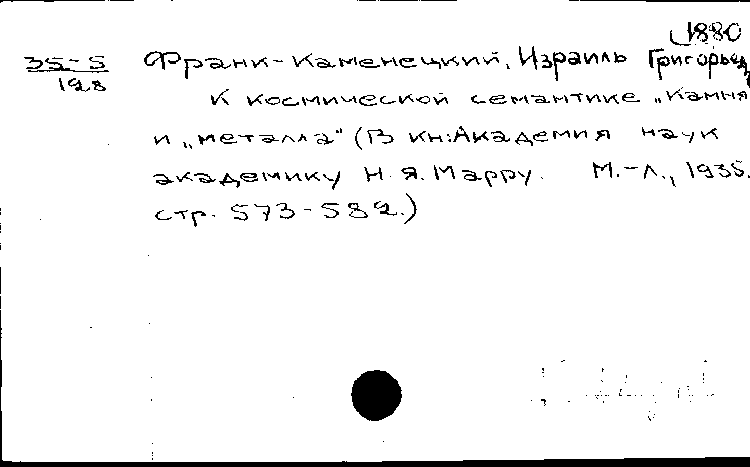 1880
35-5 Франк-Каменецкий, Израиль Григорьев
128 К космической семантике „камня
и „металла" (В кн: Академия наук
академику Н. Я. Марру. М.-Л., 1935.
стр. 573-582.)